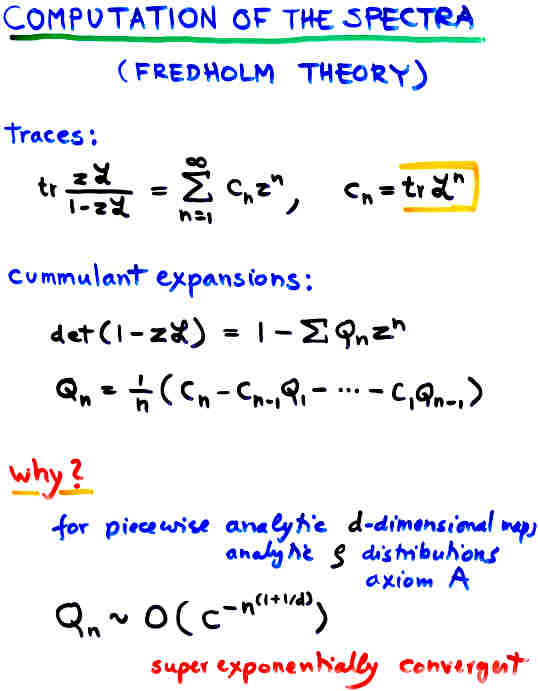 COMPUTATION OF THE SPECTRA
(FREDHOLM THEORY)
traces:
tr zℒ/(1-zℒ) = ∑_{n=1}^{∞} C_n z^n, C_n = tr ℒ^n
cummulant expansions:
det(1-zℒ) = 1 - ∑ Q_n z^n
Q_n = 1/n (C_n - C_{n-1}Q_1 - ⋯ - C_1Q_{n-1})
why?
for piecewise analytic d-dimensional maps
analytic ρ distributions
axiom A
Q_n ~ O(C^{-n^{(1+1/d)}})
super exponentially convergent